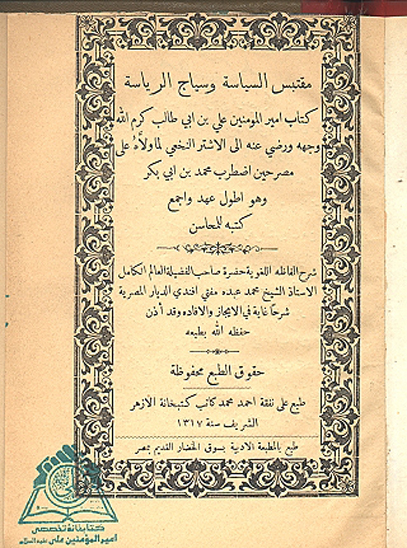 مقتبس السياسة وسياج الرياسة
كتاب امير المؤمنين علي بن ابي طالب كرم الله
وجهه ورضي عنه الى الاشتر النخعي لما ولاّهُ على
مصر حين اضطرب محمد بن ابي بكر
وهو اطول عهد واجمع
كتبه للمحاسن
شرح الفاظه اللغوية حضرة صاحب الفضيلة العالم الكامل
الاستاذ الشيخ محمد عبده مفتي افندي الديار المصرية
شرحا غاية في الايجاز والافاده وقد أذن
حفظه الله بطبعه
حقوق الطبع محفوظة
طبع على نفقة احمد محمد كاتب كتبخانة الازهر
الشريف سنة ١٣١٧
طبع بالمطبعة الادبية بسوق الخضار القديم بمصر
كتابخانهٔ تخصصى
امير المؤمنين على عليه السلام